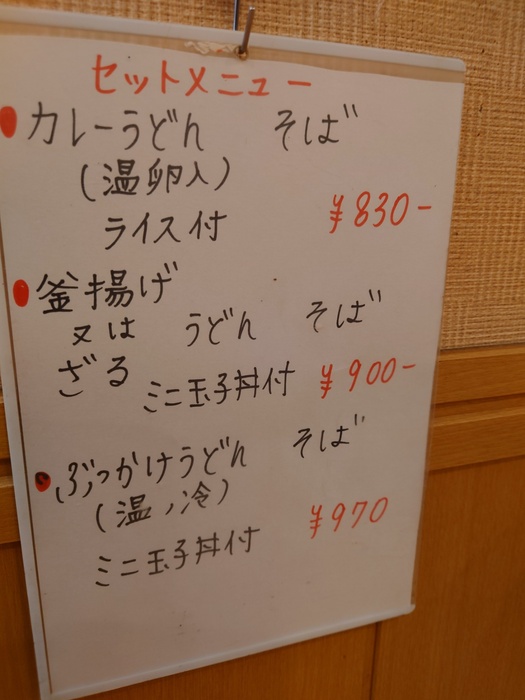 セットメニュー
カレーうどん そば
(温卵入)
ライス付 ¥830-
釜揚げ
又は うどん そば
ざる ミニ玉子丼付 ¥900-
ぶっかけうどん そば
(温、冷)
ミニ玉子丼付 ¥970